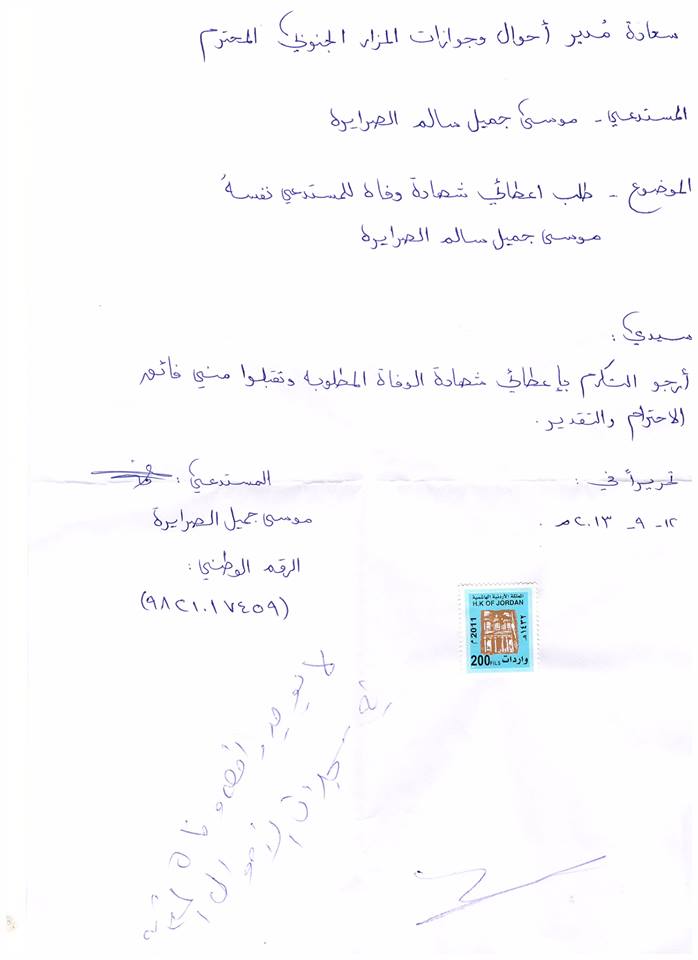 سعادة مُدير أحوال وجوازات المزار الجنوبي المحترم
المستدعي - موسى جميل سالم الصرايره
الموضوع - طلب اعطائي شهادة وفاه للمستدعي نفسهُ
موسى جميل سالم الصرايره
سيدي :
أرجو التكرم بإعطائي شهادة الوفاة المطلوبه وتقبلوا مني فائق
الاحترام والتقدير .
تحريراً في :
١٢ - ٩ - ٢٠١٣م .
المستدعي :
موسى جميل الصرايرة
الرقم الوطني :
(٩٨٢١٠١٧٤٥٩)
المملكة الأردنية الهاشمية
H.K OF JORDAN
2011 م
١٤٣٢ هـ
200 FILS واردات
لا يوجد
وفاة